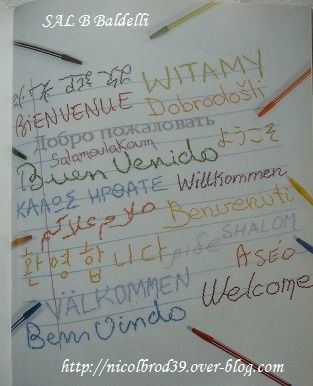 SAL B Baldelli
WITAMY
BIENVENUE Dobrodošli
Добро пожаловать
SalamoulaKoum ようこそ
Buen Venido
ΚΑΛΩΣ ΗΡΘΑΤΕ Willkommen
Benvenuti
환 영 합 니 다 שלום SHALOM
ASÉO
VÄLKOMMEN Welcome
Bem Vindo
http://nicolbrod39.over-blog.com